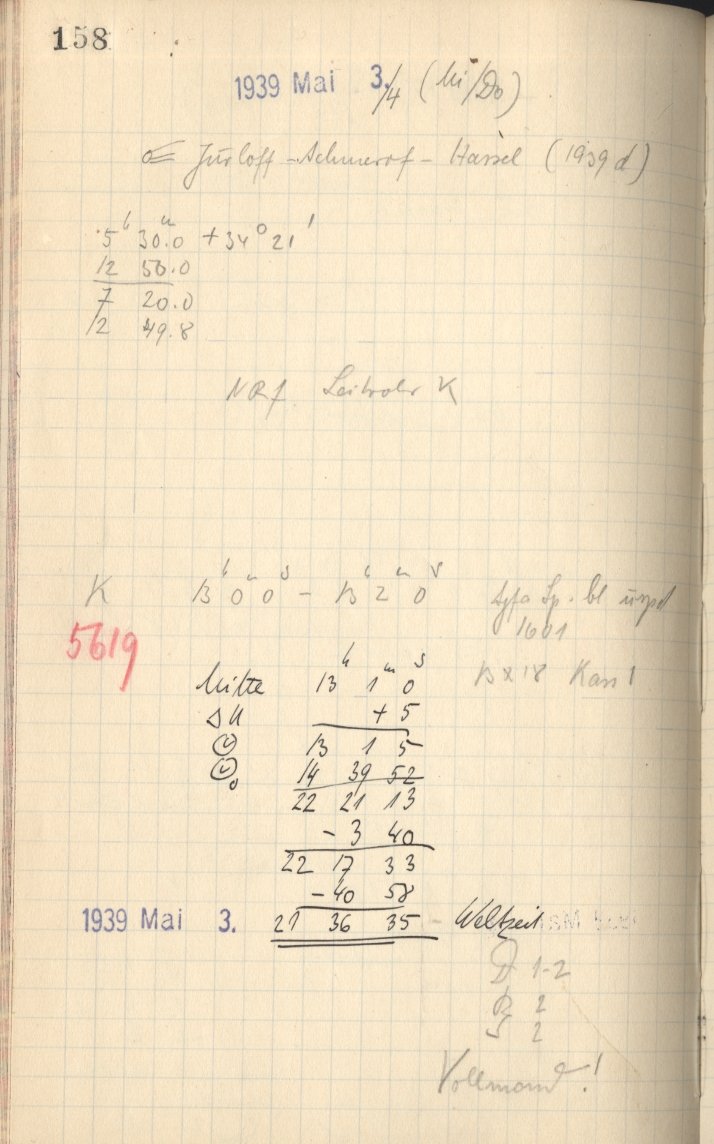 158
1939 Mai 3./4 (Mi/Do)
☄ Jurloff - Achmarof - Hassel (1939 d)
5ʰ 30ᵐ.0 + 34° 21'
12 50.0
7 20.0
12 49.8
NRf. Leitrohr K
K 13ʰ 0ᵐ 0ˢ - 13ʰ 2ᵐ 0ˢ Agfa Sp. bl
5619 1601
Mitte 13ʰ 1ᵐ 0ˢ 13 x 18 Kass 1
ΔU + 5
13 1 5
14 39 52
22 21 13
- 3 40
22 17 33
- 40 58
1939 Mai 3. 21 36 35 - Weltzeit
D 1-2
R 2
S 2
Vollmond!